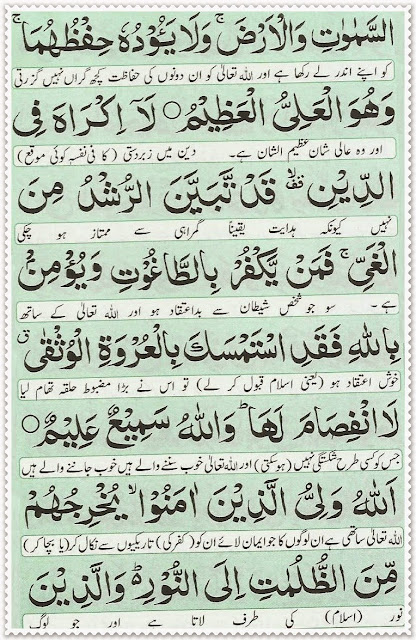 السَّمٰوٰتِ وَالْاَرْضَ ۚ وَلَا يَـُٔوْدُهٗ حِفْظُهُمَا ۚ
کو اپنے اندر لے رکھا ہے اور اللہ تعالیٰ کو ان دونوں کی حفاظت کچھ گراں نہیں گزرتی
وَهُوَ الْعَلِىُّ الْعَظِيْمُ ۝ لَآ اِكْرَاهَ فِى
اور وہ عالی شان عظیم الشان ہے۔ دین میں زبردستی (کا فی نفسہٖ کوئی موقع)
الدِّيْنِ ۙ قَدْ تَّبَيَّنَ الرُّشْدُ مِنَ
نہیں کیونکہ ہدایت یقیناً گمراہی سے ممتاز ہو چکی
الْغَىِّ ۚ فَمَنْ يَّكْفُرْ بِالطَّاغُوْتِ وَيُؤْمِنْۢ
ہے۔ سو جو شخص شیطان سے بداعتقاد ہو اور اللہ تعالیٰ کے ساتھ
بِاللّٰهِ فَقَدِ اسْتَمْسَكَ بِالْعُرْوَةِ الْوُثْقٰى ۗ
خوش اعتقاد ہو (یعنی اسلام قبول کر لے) تو اس نے بڑا مضبوط حلقہ تھام لیا
لَا انْفِصَامَ لَهَا ؕ وَاللّٰهُ سَمِيْعٌ عَلِيْمٌ ۝
جس کو کسی طرح شکستگی نہیں (ہو سکتی) اور اللہ تعالیٰ خوب سننے والے ہیں خوب جاننے والے ہیں
اَللّٰهُ وَلِىُّ الَّذِيْنَ اٰمَنُوْا ۙ يُخْرِجُهُمْ
اللہ تعالیٰ ساتھی ہے ان لوگوں کا جو ایمان لائے ان کو (کفر کی) تاریکیوں سے نکال کر (یا بچا کر)
مِّنَ الظُّلُمٰتِ اِلَى النُّوْرِ ؕ وَالَّذِيْنَ
نور (اسلام) کی طرف لاتا ہے اور جو لوگ